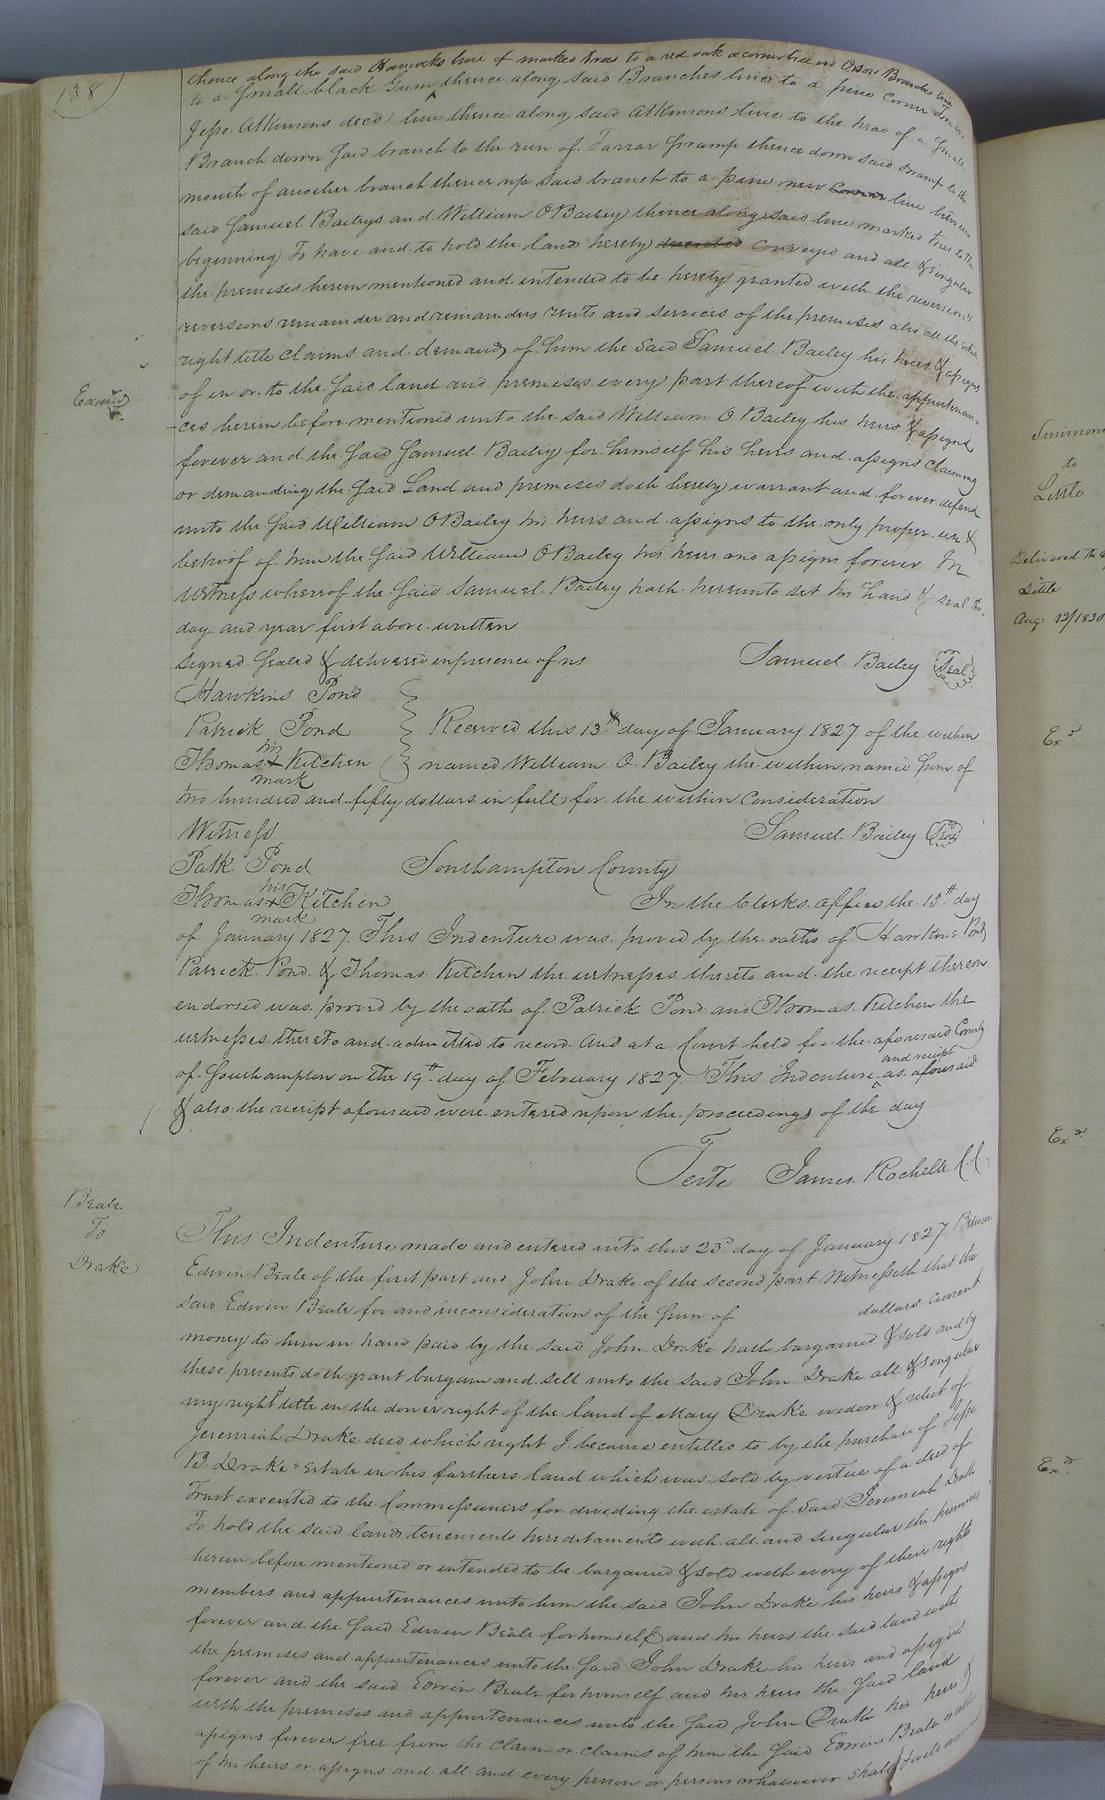 138
thence along the said Hancocks line of marked trees to a red oak a corner tree in Orson Branches line
to a small black Gum thence along said Branches line to a pine corner tree in
Jesse Atkinsons decd line thence along said Atkinsons line to the head of a small
Branch down said branch to the run of Tarrar Swamp thence down said swamp to the
mouth of another branch thence up said branch to a pine new Corner line between
said Samuel Baileys and William O Bailey thence along said line marked trees to the
beginning To have and to hold the lands hereby conveyed and all & singular
the premises herein mentioned and intended to be hereby granted with the reversion &
reversions remainder and remainders rents and services of the premises also all the estate
right title claims and demand of him the said Samuel Bailey his heirs & assigns
of in or to the said land and premises every part thereof with the appurtenan-
-ces herein before mentioned unto the said William O Bailey his heirs & assigns
forever and the said Samuel Bailey for himself his heirs and assigns claiming
or demanding the said Land and premises doth hereby warrant and forever defend
unto the said William O Bailey his heirs and assigns to the only proper use &
behoof of him the said William O Bailey his heirs and assigns forever In
Witness whereof the said Samuel Bailey hath hereunto set his hand & seal the
day and year first above written
Signed Sealed & delivered in presence of us Samuel Bailey Seal
Hawkins Pond
Patrick Pond Received this 13th day of January 1827 of the within
his
Thomas + Kitchen named William O. Bailey the within named sum of
mark
two hundred and fifty dollars in full for the within consideration
Witness Samuel Bailey Seal
Patk Pond Southampton County
his
Thomas + Kitchen In the Clerks office the 15th day
mark
of January 1827. This Indenture was proved by the oaths of Hawkins Pond
Patrick Pond & Thomas Kitchen the witnesses thereto and the receipt thereon
endorsed was proved by the oaths of Patrick Pond and Thomas Kitchen the
witnesses thereto and admitted to record And at a Court held for the aforesaid County
of Southampton on the 19th day of February 1827. This Indenture and receipt as aforesaid
& also the receipt aforesaid were entered upon the proceedings of the day
Teste James Rochelle CC
Beale
To
Drake
This Indenture made and entered into this 23d day of January 1827 Between
Edwin Beale of the first part and John Drake of the second part Witnesseth that the
said Edwin Beale for and in consideration of the sum of dollars current
money to him in hand paid by the said John Drake hath bargained & sold and by
these presents doth grant bargain and sell unto the said John Drake all & singular
my right title in the dower right of the land of Mary Drake widow & relict of
Jeremiah Drake decd which right I became entitled to by the purchase of Jesse
B. Drake Estate in his farthers land which was sold by vertue of a deed of
Trust executed to the Commessioners for dividing the estate of said Jeremiah Drake
To hold the said lands tenements hereditaments with all and singular the premises
herein before mentioned or intended to be bargained & sold with every of their rights
members and appurtenances unto him the said John Drake his heirs & assigns
forever and the said Edwin Beale for himself and his heirs the said land with
the premises and appurtenances unto the said John Drake his heirs and assigns
forever and the said Edwin Beale for himself and his heirs the said land
with the premises and appurtenances unto the said John Drake his heirs &
assigns forever free from the claim or claims of him the said Edwin Beale
of his heirs or assigns and all and every person or persons whatsoever shall
Simmons
to
Little
Delivered to
Little
Aug: 12/1830
Exd
Exd
Exd.